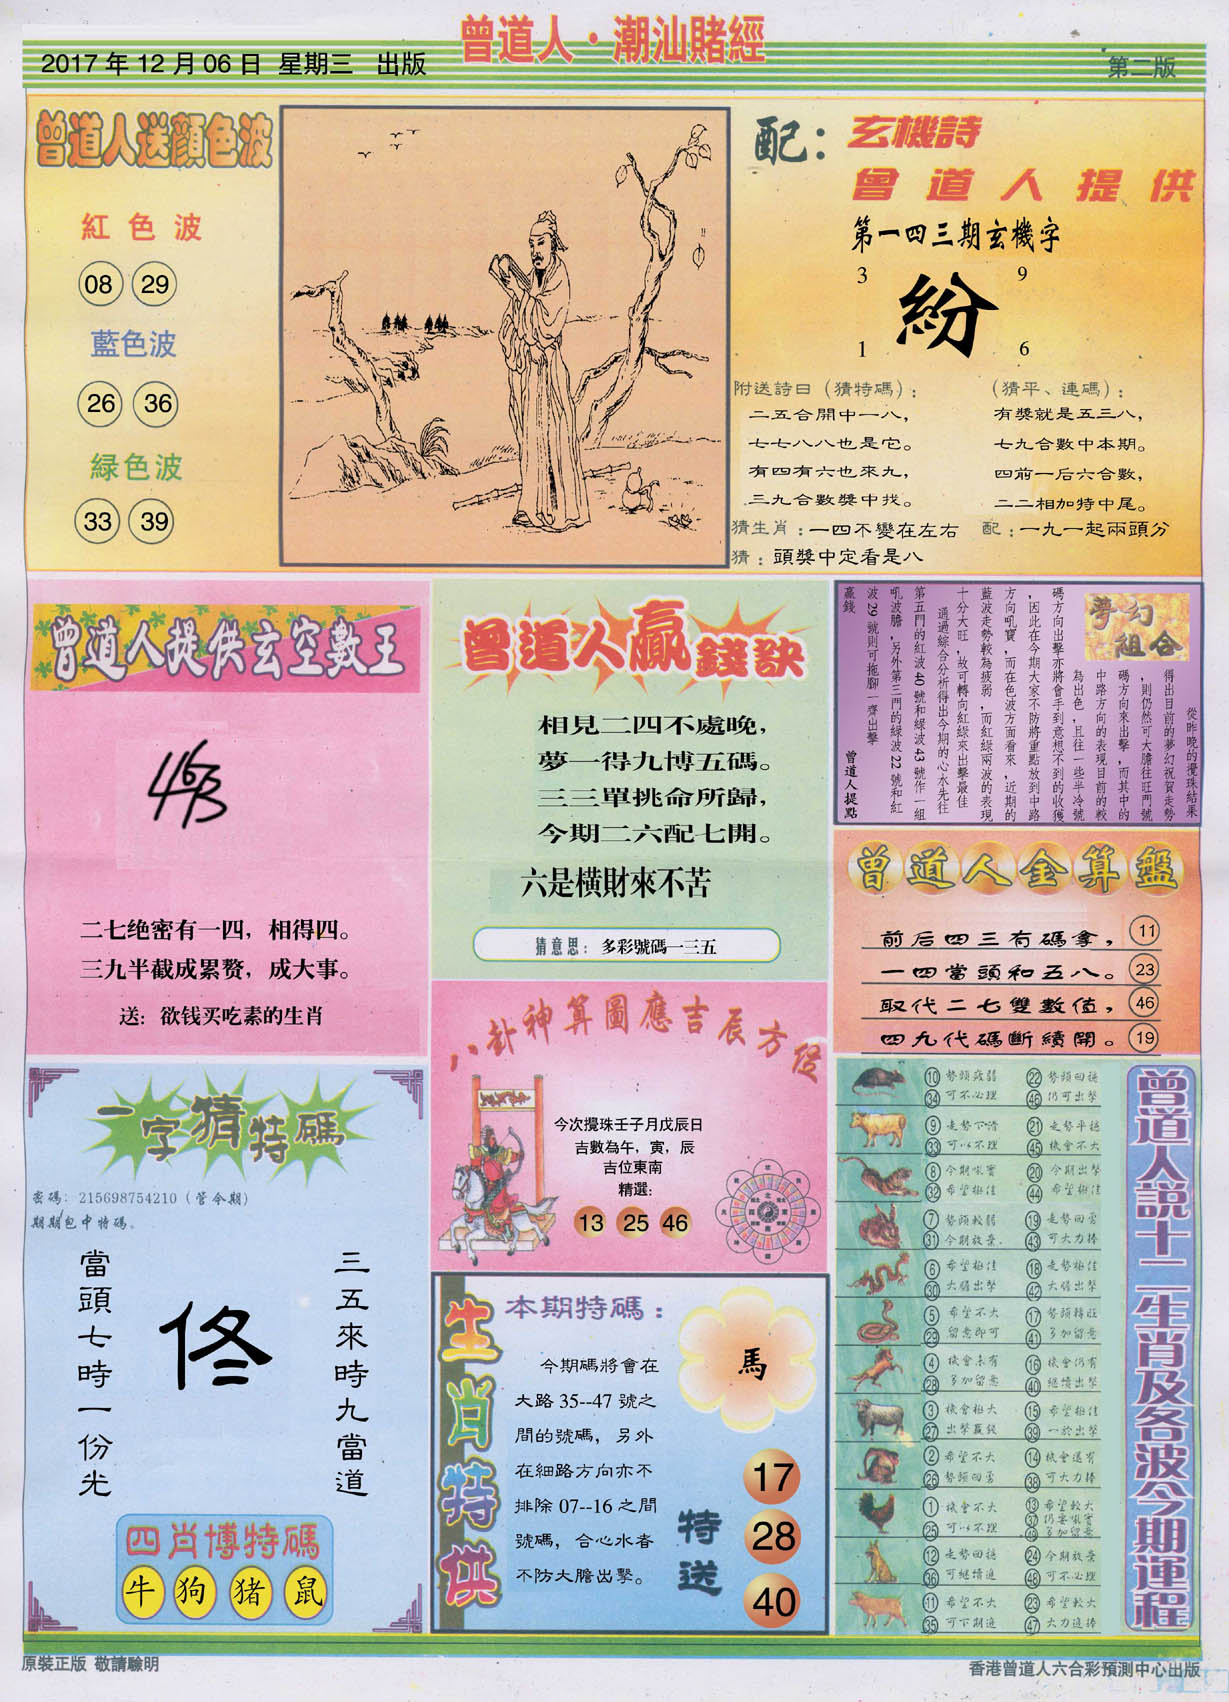 曾道人·潮汕賭經
2017年12月06日 星期三 出版
第二版
曾道人送顏色波
紅色波
08 29
藍色波
26 36
緑色波
33 39
配：玄機詩
曾道人提供
第一四三期玄機字
3 9
紛
1 6
附送詩曰（猜特碼）：
二五合開中一八，
七七八八也是它。
有四有六也來九，
三九合數獎中找。
（猜平、連碼）：
有獎就是五三八，
七九合數中本期。
四前一后六合數，
二二相加特中尾。
猜生肖：一四不變在左右
配：一九一起兩頭分
猜：頭獎中定看是八
曾道人提供玄空數王
二七绝密有一四，相得四。
三九半截成累赘，成大事。
送：欲钱买吃素的生肖
曾道人贏錢訣
相見二四不處晚，
夢一得九博五碼。
三三單挑命所歸，
今期二六配七開。
六是橫財來不苦
猜意思：多彩號碼一三五
夢幻組合
從昨晚的攪珠結果
得出目前的夢幻祝賀走勢
，則仍然可大膽往旺門號
碼方向來出擊，而其中的
中路方向的表現目前的較
為出色，且往一些半冷號
碼方向出擊亦將會手到意想不到的收獲
，因此在今期大家不防將重點放到中路
方向吼寶，而在色波方面看來，近期的
藍波走勢較為疲弱，而紅綠兩波的表現
十分大旺，故可轉向紅綠來出擊最佳
通過綜合分析得出今期的心水先往
第五門的紅波40號和綠波43號作一組
吼波膽，另外第三門的綠波22號和紅
波29號則可拖腳一齊出擊
贏錢
曾道人提點
曾道人金算盤
前后四三有碼拿， 11
一四當頭和五八。 23
取代二七雙數值， 46
四九代碼斷續開。 19
八卦神算圖應吉辰方位
今次攪珠壬子月戊辰日
吉數為午，寅，辰
吉位東南
精選：
13 25 46
一字猜特碼
密碼：215698754210（管今期）
期期包中特碼。
三五來時九當道
佟
當頭七時一份光
四肖博特碼
牛 狗 猪 鼠
生肖特供
本期特碼：
馬
今期碼將會在
大路35--47號之
間的號碼，另外
在細路方向亦不
排除07--16之間
號碼，合心水者
不防大膽出擊。
特送
17
28
40
曾道人説十二生肖及各波今期運程
10 勢頭疲弱 22 勢頭回穩
34 可不必理 46 仍可出擊
9 走勢下滑 21 走勢平穩
33 可以不理 45 機會不大
8 今期吼寶 20 今期出擊
32 希望極佳 44 希望極佳
7 勢頭較弱 19 走勢回勇
31 今期放棄. 43 可大力捧
6 希望極佳 18 走勢極佳
30 大膽出擊 42 大膽出擊
5 希望不大 17 勢頭轉旺
29 留意即可 41 多加留意
4 機會未有 16 機會仍有
28 多加留意 40 繼續出擊
3 機會極大 15 希望極佳
27 出擊贏錢 39 一於出擊
2 希望不大 14 機會還有
26 勢頭回勇 38 可大力捧
1 機會不大 13 希望較大
25 可以不理 37 仍要吼寶
49 多加留意
12 走勢回穩 24 今期放棄
36 可繼續追 48 可不必理
11 希望不大 23 希望較大
35 可下期追 47 大力追捧
原裝正版 敬請驗明
香港曾道人六合彩預測中心出版